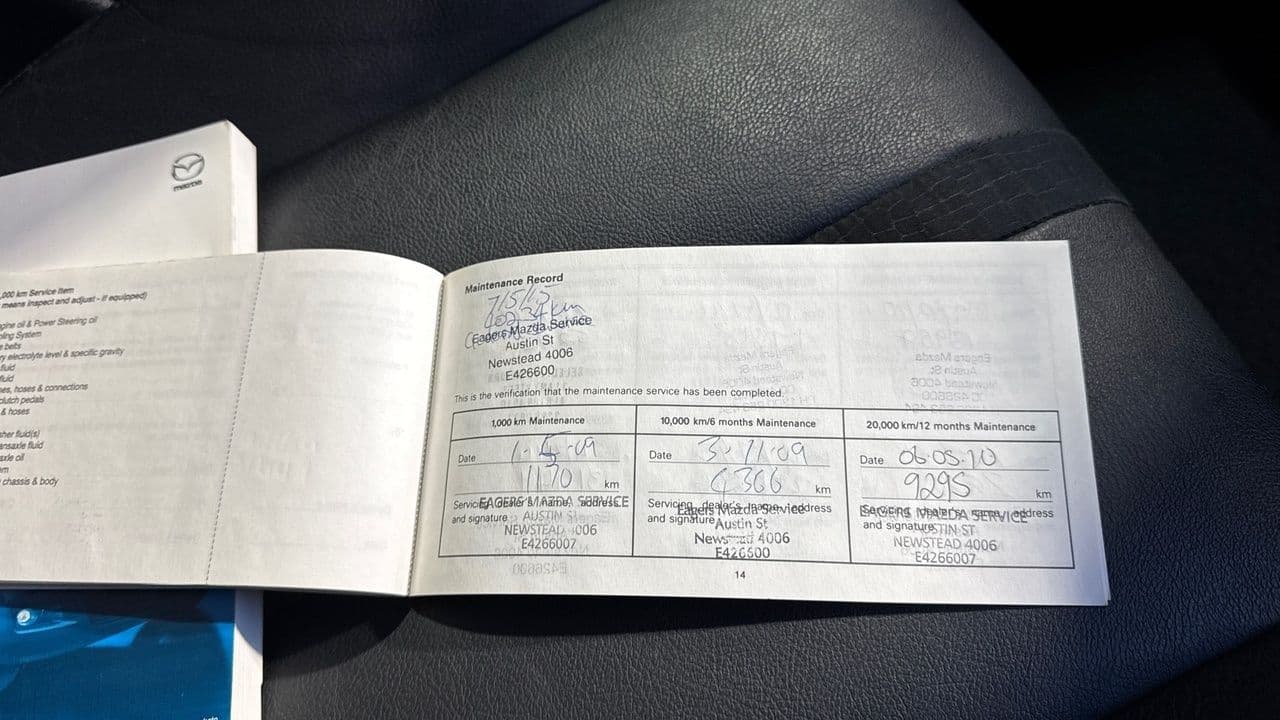 mazda
,000 km Service Item
means inspect and adjust - if equipped)
gine oil & Power Steering oil
ling System
e belts
ry electrolyte level & specific gravity
fluid
fluid
es, hoses & connections
clutch pedals
& hoses
sher fluid(s)
ansaxle fluid
axle oil
em
chassis & body
Maintenance Record
7/5/15
Eagers Mazda Service
Austin St
Newstead 4006
E426600
This is the verification that the maintenance service has been completed.
1,000 km Maintenance
Date 1-5-09
1170 km
Servicing dealer's name, address
and signature
EAGERS MAZDA SERVICE
AUSTIN ST
NEWSTEAD 4006
E4266007
10,000 km/6 months Maintenance
Date 3.11.09
4366 km
Servicing dealer's name, address
and signature
Eagers Mazda Service
Austin St
Newstead 4006
E426600
20,000 km/12 months Maintenance
Date 06.05.10
9295 km
Servicing dealer's name, address
and signature
EAGERS MAZDA SERVICE
AUSTIN ST
NEWSTEAD 4006
E4266007
14